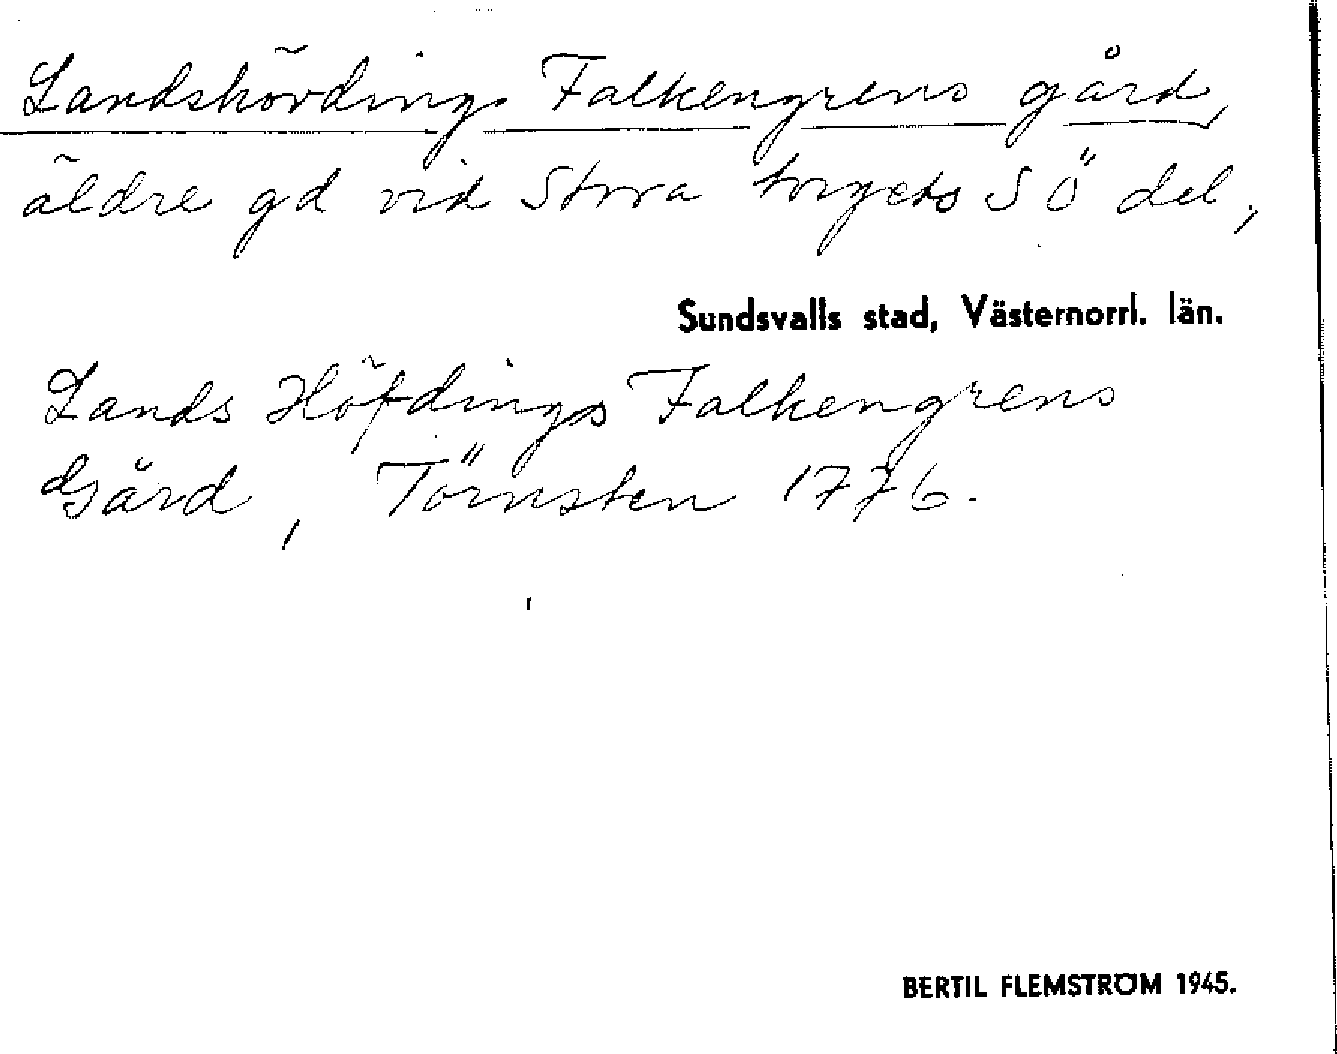 Landshövdings Falkengrens gård,
äldre gd vid Stora torgets SÖ del,
Sundsvalls stad, Västernorrl. län.
Lands Höfdings Falkengrens
Gård, Törnsten 1776.
BERTIL FLEMSTRÖM 1945.